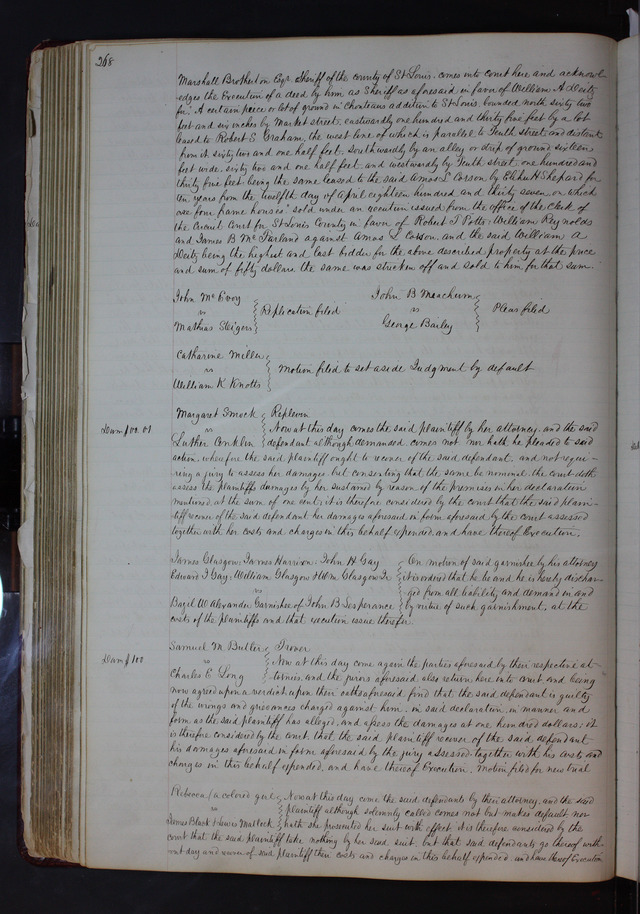 268
Marshall Brotherton Esqr Sheriff of the county of St Louis, comes into court here and acknowl-
edges the Execution of a deed by him as Sheriff as aforesaid in favor of William A Deitz
for A certain piece or lot of ground in Chouteaus addition to St Louis, bounded north sixty two
feet and six inches by Market street, eastwardly one hundred and thirty five feet by a lot
leased to Robert E Graham, the west line of which is parallel to Tenth street and distant
from it sixty two and one half feet, southwardly by an alley or strip of ground sixteen
feet wide, sixty two and one half feet, and westwardly by Tenth street one hundred and
thirty five feet being the same leased to the said Amos L Corson by Elihu H Shepard for
ten years from the twelfth day of April eighteen hundred and thirty seven on which
are four frame houses sold under an execution issued from the office of the Clerk of
the Circuit Court for St Louis County in favor of Robert T Potts, William Reynolds
and James B Mc Farland against Amos L Corson, and the said William A
Deitz being the highest and last bidder for the above described property at the price
and sum of fifty dollars the same was stricken off and sold to him for that sum.
John Mc Evoy
vs
Mathias Steigers
Replication filed
John B Meachum
vs
George Bailey
Pleas filed
Catharine Miller
vs
William K Knotts
Motion filed to set aside Judgment by default
Margaret Smock
vs
Luther Conklin
Replevin
Dam $00.01
Now at this day comes the said plaintiff by her attorney, and the said
defendant although demanded, comes not nor hath he pleaded to said
action, wherefore the said plaintiff ought to recover of the said defendant, and not requi-
ring a jury to assess her damages but consenting that the same be nominal, the court doth
assess the plaintiffs damages by her sustained by reason of the premises in her declaration
mentioned, at the sum of one cent; it is therefore considered by the court that the said plain-
tiff recover of the said defendant her damages aforesaid in form aforesaid by the court assessed
together with her costs and charges in this behalf expended, and have thereof Execution.
James Glasgow, James Harrison, John H Gay
Edward J Gay, William Glasgow & Wm Glasgow Jr
vs
Bazil W Alexander Garnishee of John B Lesperance
On motion of said garnishee by his attorney
it is ordered that he be and he is hereby dischar-
ged from all liability and demand in and
by virtue of such garnishment, at the
costs of the plaintiffs and that execution issue therefor
Samuel M Butler
vs
Charles E Long
Trover
Dam $100
Now at this day come again the parties aforesaid by their respective at-
tornies, and the jurors aforesaid also return here into court and being
now agreed upon a verdict upon their oaths aforesaid find that the said defendant is guilty
of the wrongs and grievances charged against him, in said declaration, in manner and
form as the said plaintiff has alleged, and assess the damages at one hundred dollars; it
is therefore considered by the court, that the said plaintiff recover of the said defendant
his damages aforesaid in form aforesaid by the jury assessed together with his costs and
charges in this behalf expended, and have thereof Execution. Motion filed for new trial
Rebecca (a colored girl
vs
James Black & James Matlock
Now at this day come the said defendants by their attorney, and the said
plaintiff although solemnly called comes not but makes default, nor
hath she prosecuted her suit with effect it is therefore considered by the
court that the said plaintiff take nothing by her said suit, but that said defendants go thereof with-
out day and recover of said plaintiff their costs and charges in this behalf expended, and have thereof Execution